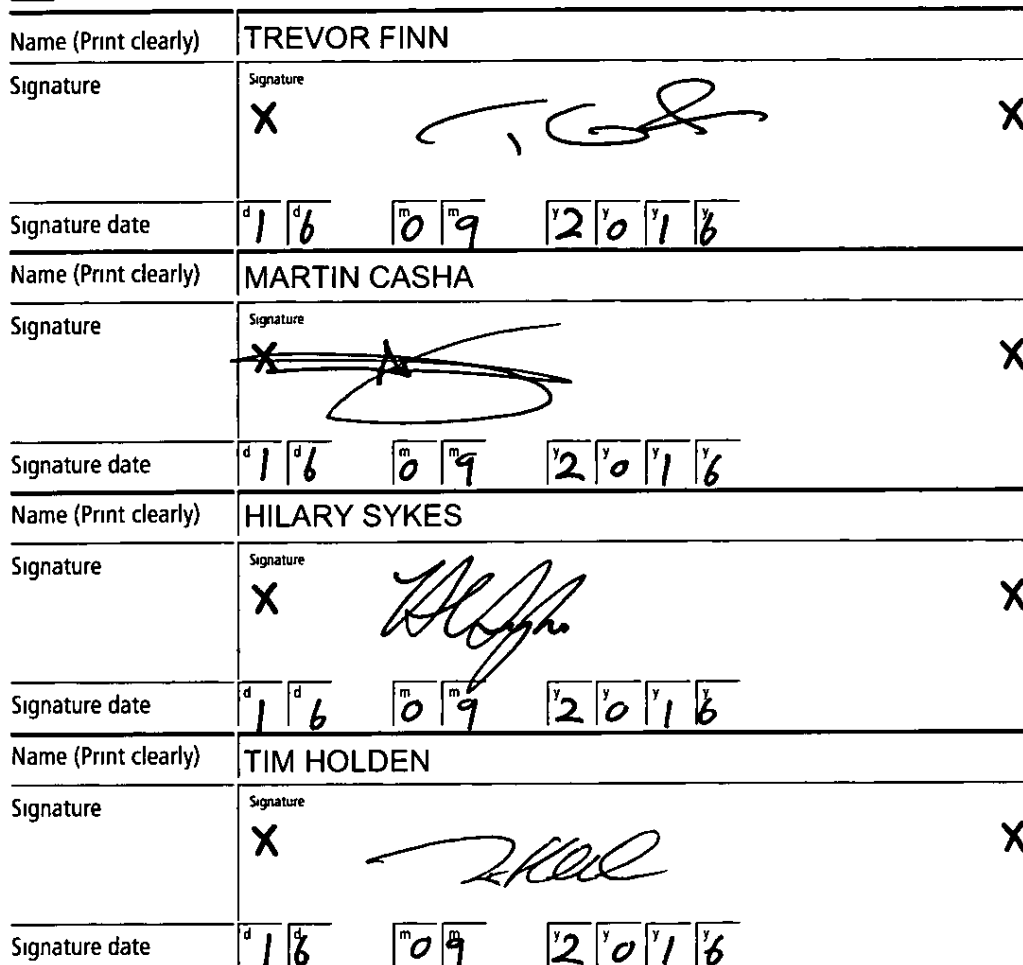 Name (Print clearly) TREVOR FINN
Signature Signature
X X
Signature date d 1 d 6 m 0 m 9 y 2 y 0 y 1 y 6
Name (Print clearly) MARTIN CASHA
Signature Signature
X X
Signature date d 1 d 6 m 0 m 9 y 2 y 0 y 1 y 6
Name (Print clearly) HILARY SYKES
Signature Signature
X X
Signature date d 1 d 6 m 0 m 9 y 2 y 0 y 1 y 6
Name (Print clearly) TIM HOLDEN
Signature Signature
X X
Signature date d 1 d 6 m 0 m 9 y 2 y 0 y 1 y 6